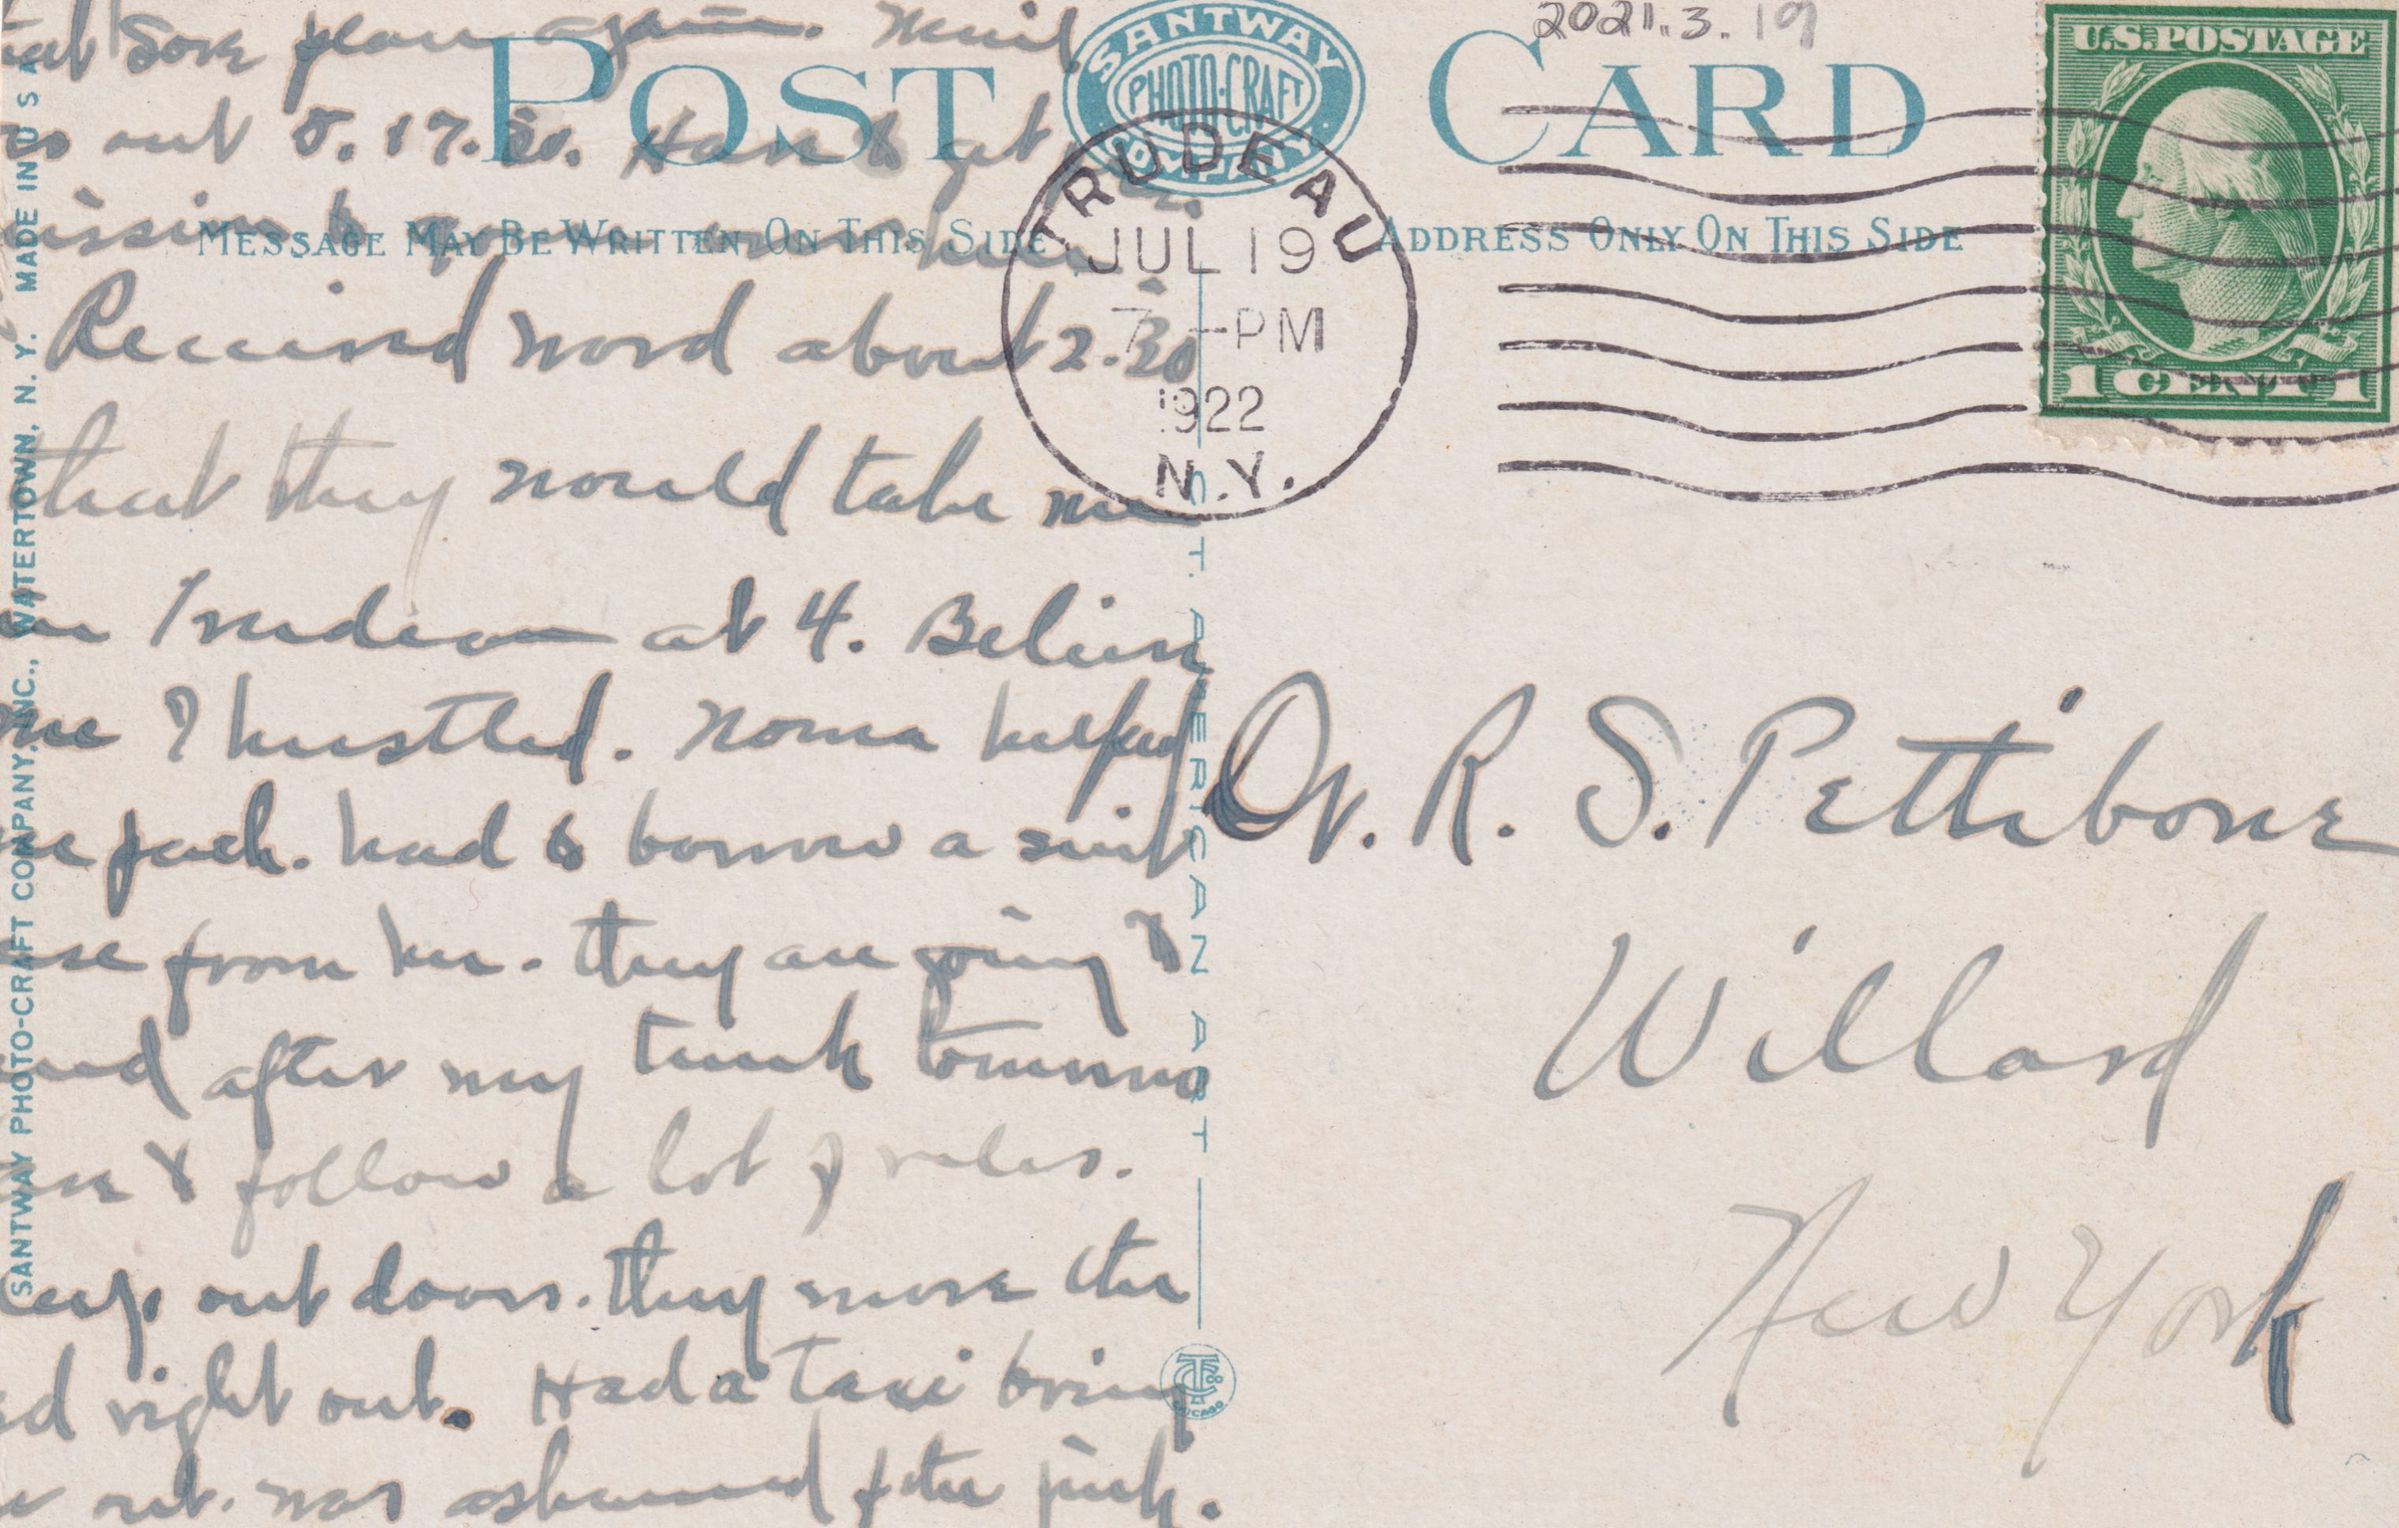 sore place again. Mail
out 8.17.20. Have to get
mission to
Received word about 2.30
that they would take me
in Trudeau at 4. Believe
me I hustled. Norma helped
me pack. had to borrow a suit
case from her. They are going to
send after my trunk tomorrow
& follow a lot of rules.
sleep out doors. They move the
bed right out. Had a taxi bring
me out. Was ashamed of the junk.
SANTWAY PHOTO-CRAFT COMPANY, INC., WATERTOWN, N. Y. MADE IN U S A
POST CARD
SANTWAY
PHOTO-CRAFT
COMPANY
MESSAGE MAY BE WRITTEN ON THIS SIDE
ADDRESS ONLY ON THIS SIDE
C.T. AMERICAN ART
CHICAGO
2021.3.19
TRUDEAU
JUL 19
7 - PM
1922
N.Y.
U.S. POSTAGE
1 CENT 1
Dr. R. S. Pettibone
Willard
New York